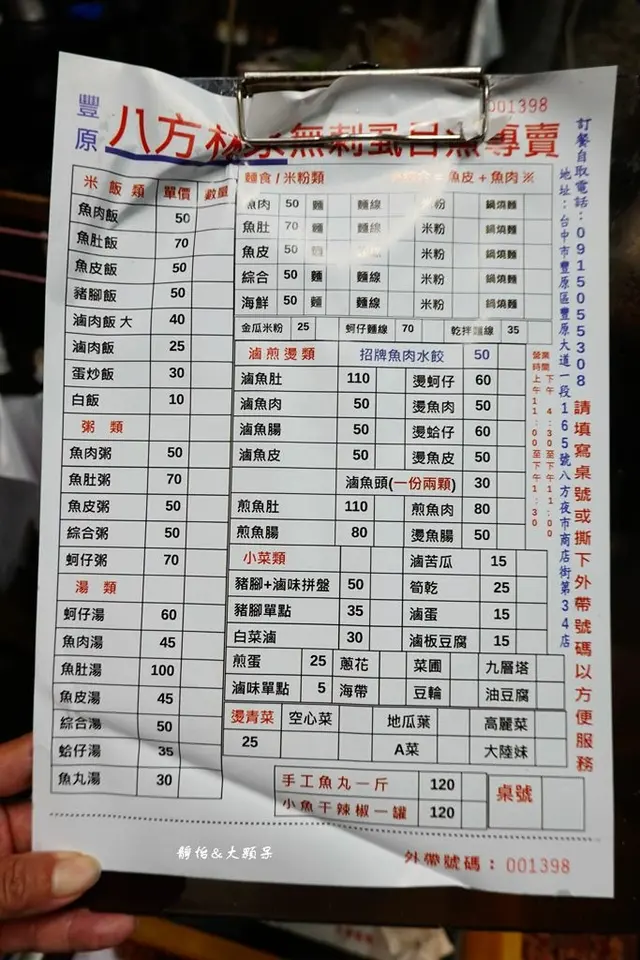 豐原
八方 無刺虱目魚專賣
001398
米飯類 單價 數量
魚肉飯 50
魚肚飯 70
魚皮飯 50
豬腳飯 50
滷肉飯 大 40
滷肉飯 25
蛋炒飯 30
白飯 10
粥 類
魚肉粥 50
魚肚粥 70
魚皮粥 50
綜合粥 50
蚵仔粥 70
湯 類
蚵仔湯 60
魚肉湯 45
魚肚湯 100
魚皮湯 45
綜合湯 50
蛤仔湯 35
魚丸湯 30
麵食/米粉類 = 魚皮 + 魚肉 ※
魚肉 50 麵 麵線 米粉 鍋燒麵
魚肚 70 麵 麵線 米粉 鍋燒麵
魚皮 50 麵 米粉 鍋燒麵
綜合 50 麵 麵線 米粉 鍋燒麵
海鮮 50 麵 麵線 米粉 鍋燒麵
金瓜米粉 25 蚵仔麵線 70 乾拌麵線 35
滷煎燙類 招牌魚肉水餃 50
滷魚肚 110 燙蚵仔 60
滷魚肉 50 燙魚肉 50
滷魚腸 50 燙蛤仔 60
滷魚皮 50 燙魚皮 50
滷魚頭(一份兩顆) 30
煎魚肚 110 煎魚肉 80
煎魚腸 80 燙魚腸 50
小菜類 滷苦瓜 15
豬腳+滷味拼盤 50 筍乾 25
豬腳單點 35 滷蛋 15
白菜滷 30 滷板豆腐 15
煎蛋 25 蔥花 菜圃 九層塔
滷味單點 5 海帶 豆輪 油豆腐
燙青菜 空心菜 地瓜葉 高麗菜
25 A菜 大陸妹
手工魚丸一斤 120 桌號
小魚干辣椒一罐 120
營業時間
上午11:00至下午1:30
下午 4:30至下午11:00
地址:台中市豐原區豐原大道一段165號八方夜市商店街第34店
訂餐自取電話:0915055308
請填寫桌號或撕下外帶號碼以方便服務
靜怡&大顆呆
外帶號碼: 001398